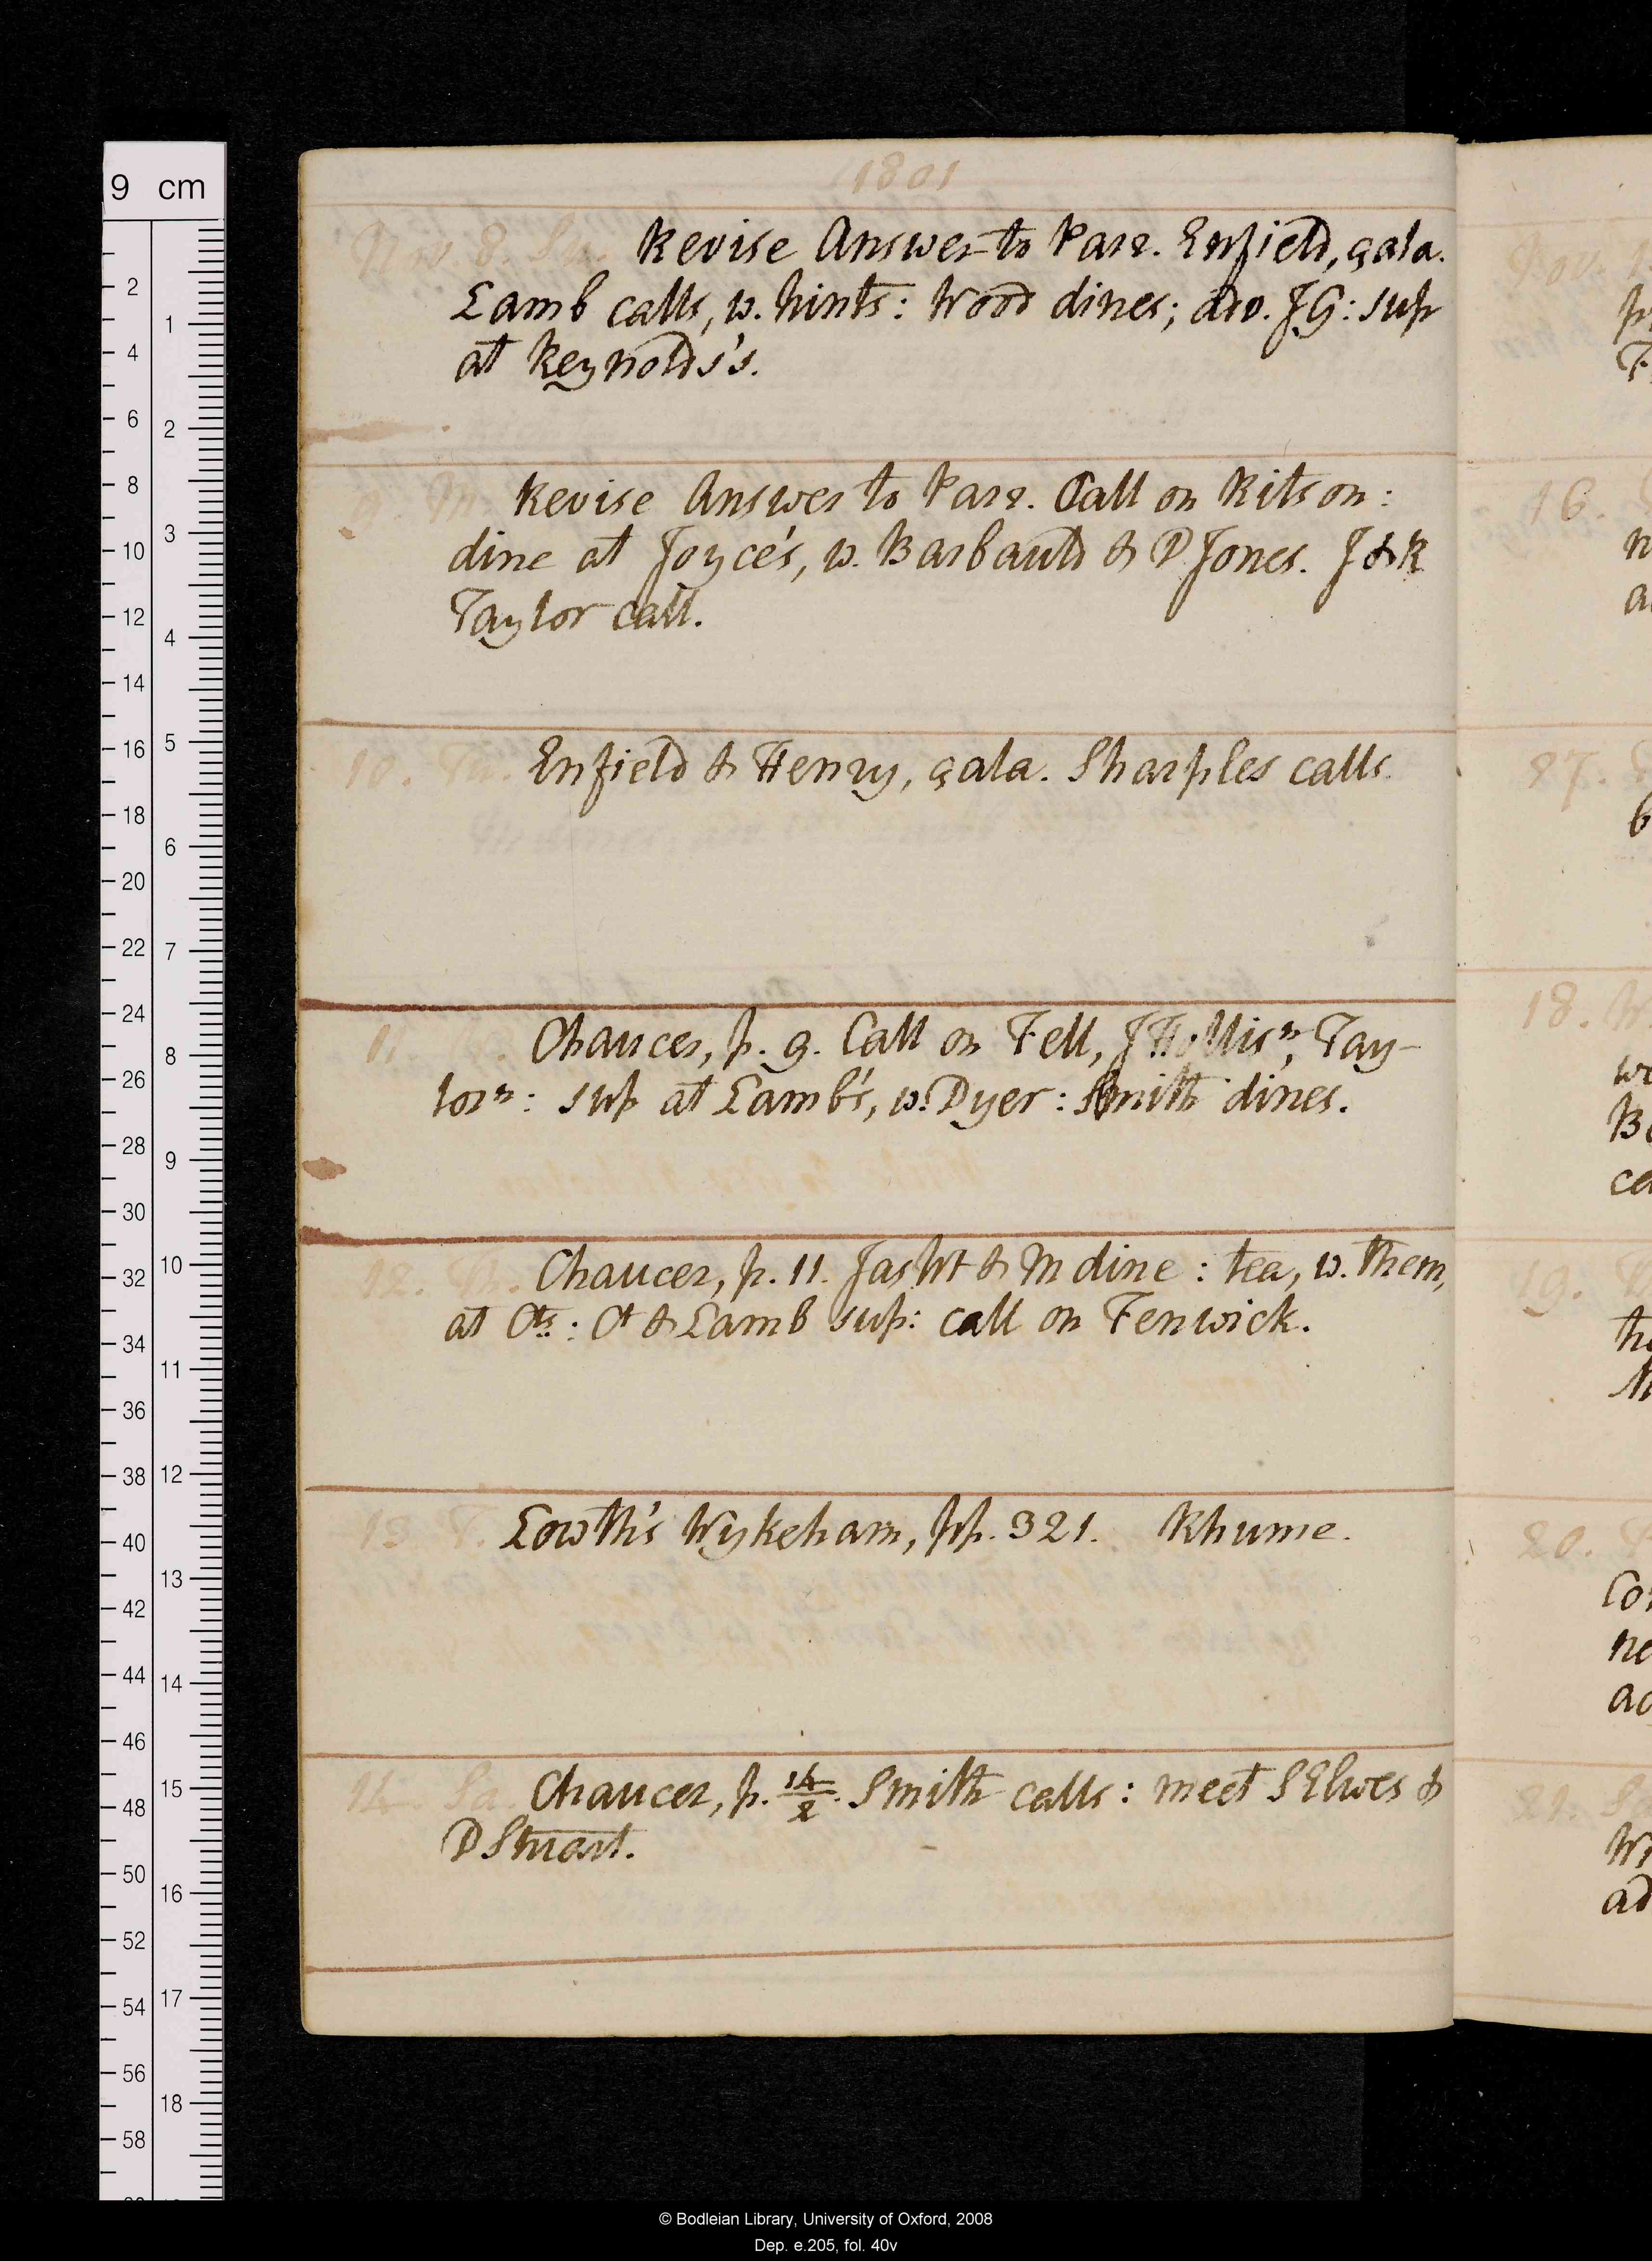 1801
Nov. 8. Su. Revise Answer to Parr. Enfield, çala.
Lamb calls, w. hints: Wood dines; adv. JG: sup
at Reynolds's.
9. M. Revise Answer to Parr. Call on Ritson:
dine at Joyce's, w. Barbauld & P Jones. J & R
Taylor call.
10. Tu. Enfield & Henry, çala. Sharples calls.
11. Chaucer, p. 9. Call on Fell, J Hollis n, Tay-
lor n: sup at Lamb's, w. Dyer: Smith dines.
12. Th. Chaucer, p. 11. Jas Wt & M dine: tea, w. them,
at Cts: Ct & Lamb sup: call on Fenwick.
13. F. Lowth's Wykeham, pp. 321. Rhume.
14. Sa. Chaucer, p. 14/2. Smith calls: meet S Elwes &
D Stuart.
16.
18.
19.
20.
21.
9 cm
2 4 6 8 10 12 14 16 18 20 22 24 26 28 30 32 34 36 38 40 42 44 46 48 50 52 54 56 58
1 2 3 4 5 6 7 8 9 10 11 12 13 14 15 16 17 18
© Bodleian Library, University of Oxford, 2008
Dep. e.205, fol. 40v